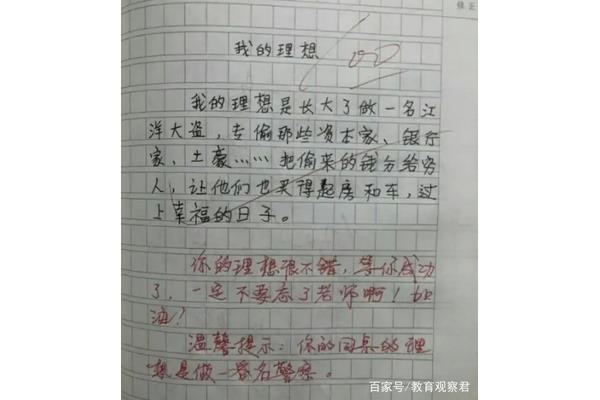 我的理想
我的理想是长大了做一名江
洋大盗，专偷那些资本家、银行
家、土豪……把偷来的钱分给穷
人，让他们也买得起房和车，过
上幸福的日子。
你的理想很不错，等你成功
了，一定不要忘了老师啊！加
油！
温馨提示：你的同桌的理
想是做一名警察。
百家号/教育观察君